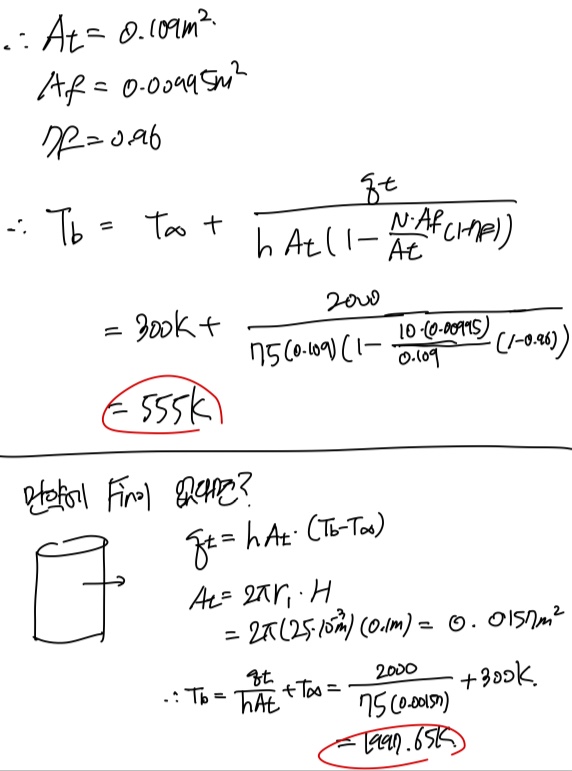 ∴ At = 0.109m².
Af = 0.00995m²
ηf = 0.96
∴ Tb = T∞ + qt / (h At(1 − N·Af/At (1−ηf)))
= 300K + 2000 / (75(0.109)(1 − 10·(0.00995)/0.109 (1−0.96)))
= 555K
만약에 Fin이 없다면?
qt = hAt·(Tb−T∞)
At = 2πr₁·H
= 2π(25·10⁻³m)(0.1m) = 0.0157m²
∴ Tb = qt/hAt + T∞ = 2000 / 75(0.00157) + 300K.
= 1997.65K